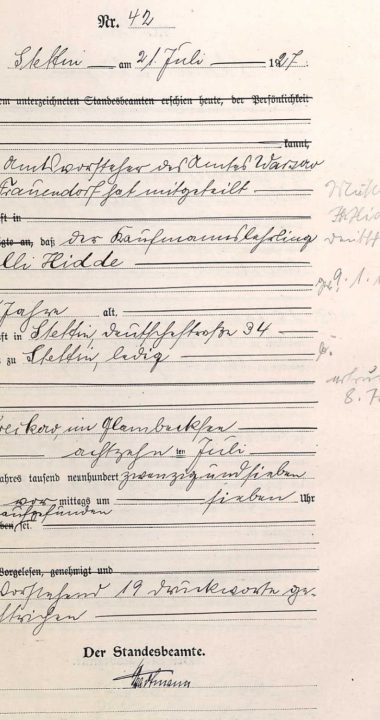 Nr. 42
Stettin am 21. Juli 1927.
em unterzeichneten Standesbeamten erschien heute, der Persönlichkeit
kannt,
Amtsvorsteher des Amtes Warsow
Frauendorf hat mitgeteilt
ft in
igte an, daß der Kaufmannslehrling
lli Hidde
Jahre alt,
ft in Stettin, deutschestraße 34
n zu Stettin, ledig
reikow im Glambecksee
achtzehn ten Juli
ahres tausend neunhundert zwanzigundsieben
vor mittags um sieben Uhr
aufgefunden
ben sei.
Vorgelesen, genehmigt und
Vorstehend 19 druckworte ge-
strichen
Der Standesbeamte.